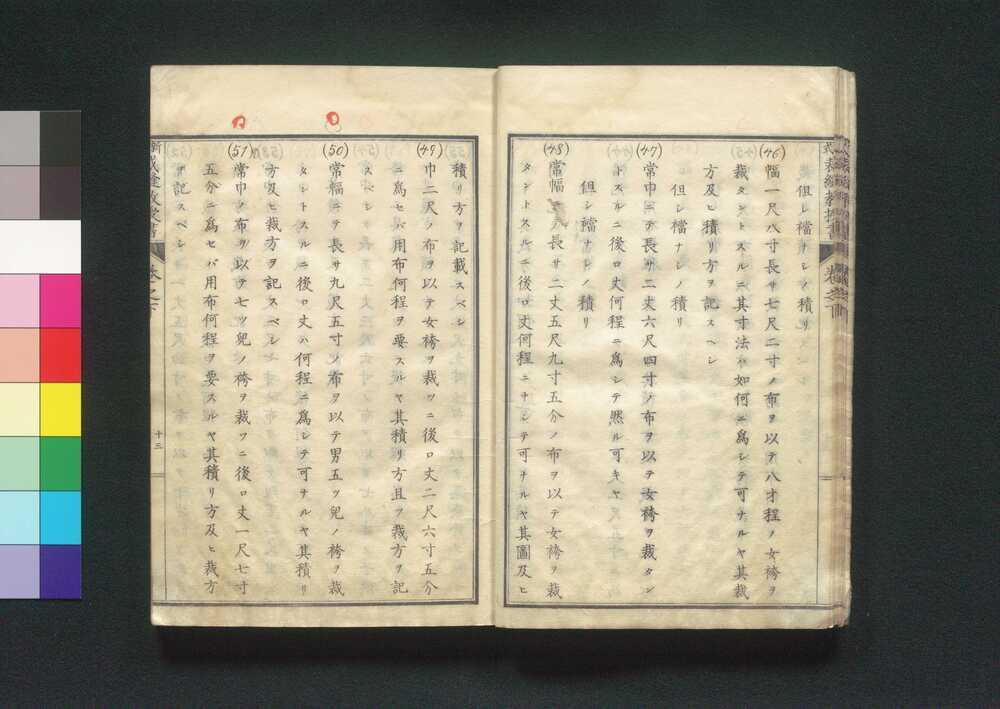 但シ襠ナシノ積リ
(46) 幅一尺八寸長サ七尺二寸ノ布ヲ以テ八才程ノ女袴ヲ
裁タントスルニ其寸法ハ如何ニ爲シテ可ナルヤ其裁
方及ヒ積リ方ヲ記スベシ
但シ襠ナシノ積リ
(47) 常巾ニテ長サ二丈六尺四寸ノ布ヲ以テ女袴ヲ裁タン
トスルニ後ロ丈何程ニ爲シテ然ル可キヤ
但シ襠ナシノ積リ
(48) 常幅 長サ二丈五尺九寸五分ノ布ヲ以テ女袴ヲ裁
タントスルニ後ロ丈何程ニナシテ可ナルヤ其圖及ヒ
積リ方ヲ記載スベシ
(49) 巾二尺ノ布ヲ以テ女袴ヲ裁ツニ後ロ丈二尺六寸五分
ニ爲セバ用布何程ヲ要スルヤ其積リ方且ツ裁方ヲ記
スベシ
(50) 常幅ニテ長サ九尺五寸ノ布ヲ以テ男五ツ兒ノ袴ヲ裁
タントスルニ後ロ丈ハ何程ニ爲シテ可ナルヤ其積リ
方及ヒ裁方ヲ記スベシ
(51) 常巾ノ布ヲ以テ七ツ兒ノ袴ヲ裁ツニ後ロ丈一尺七寸
五分ニ爲セバ用布何程ヲ要スルヤ其積リ方及ヒ裁方
ヲ記スベシ
十三